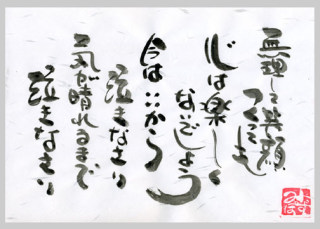 無理して笑顔
つくっても
心は楽しく
ないでしょう
今はいいから
泣きなさい
気が晴れるまで
泣きなさい